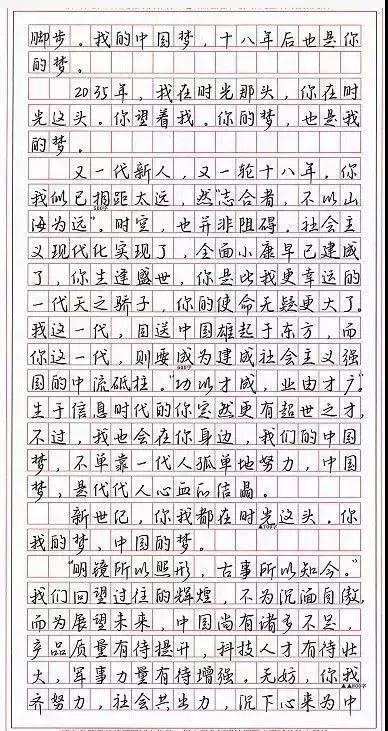 脚步。我的中国梦，十八年后也是你
的梦。
2035年，我在时光那头，你在时
光这头。你望着我。你的梦，也是我
的梦。
又一代新人，又一轮十八年。你
我似已相距太远，然“志合者，不以山
海为远”。时空，也并非阻碍。社会主
义现代化实现了，全面小康早已建成
了，你生逢盛世，你是比我更幸运的
一代天之骄子，你的使命无疑更大了。
我这一代，目送中国雄起于东方，而
你这一代，则要成为建成社会主义强
600字
国的中流砥柱。“功以才成，业由才广。”
生于信息时代的你突然更有超世之才，
不过，我也会在你身边，我们的中国
梦，不单靠一代人孤单地努力，中国
梦，是代代人心血的结晶。
新世纪，你我都在时光这头。你
我的梦，中国的梦。
“明镜所以照形，古事所以知今。”
我们回望过往的辉煌，不为沉湎自傲，
而为展望未来，中国尚有诸多不足，
产品质量有待提升，科技人才有待壮
大，军事力量有待增强。无妨，你我
▲▲800字
齐努力，社会共出力，沉下心来为中